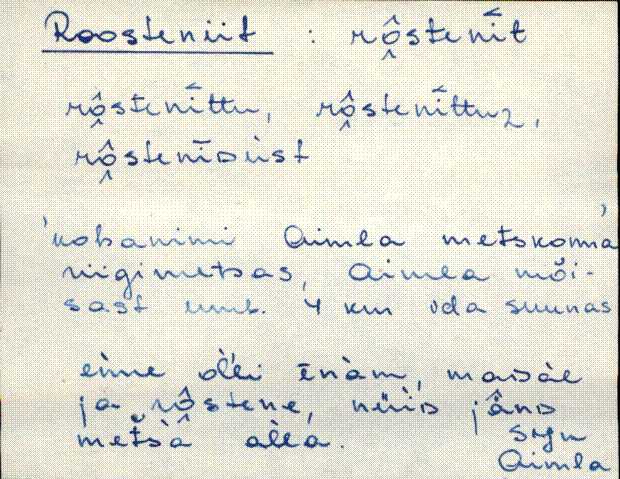 Roosteniit : rô̭stenī́t
rô̭stenī́ttu, rô̭stenī́ttuz,
rô̭stenīDùst
'kohanimi Aimla metskonna'
riigimetsas, Aimla mõi-
sast umb. 4 km ida suunas
enne oĺĺi ēnàm, maDàl
ja rô̭stene, nüiD jânD
metsà alla.
Srgn
Aimla